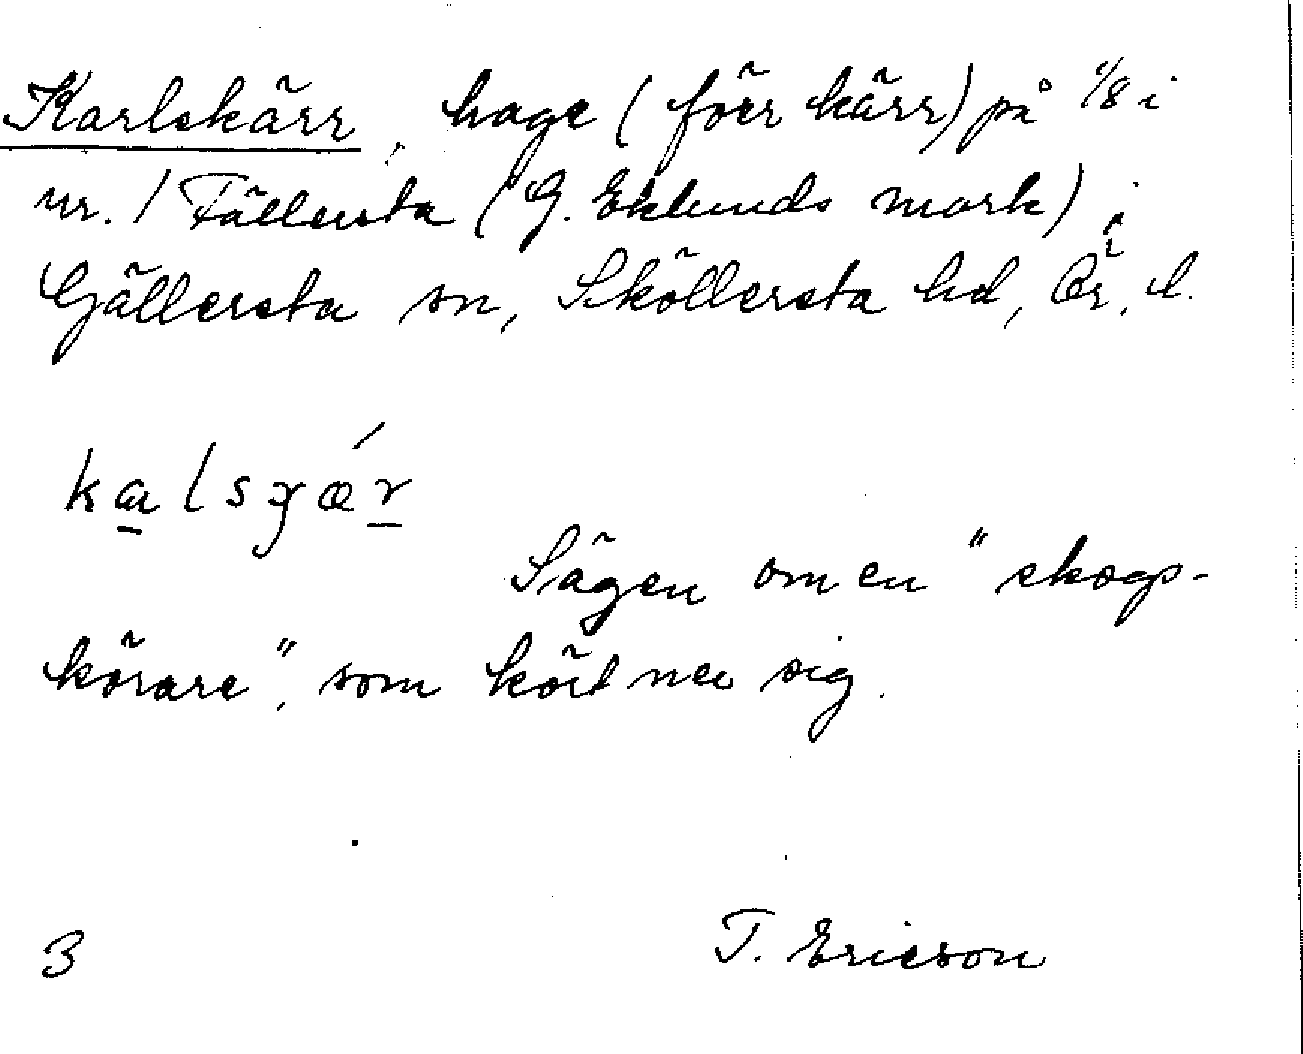 Karlskärr, hage (förr kärr) på 1/8 i
nr. 1 Fällersta (G. Eklunds mark) i
Gällersta sn, Sköllersta hd, Ör. l.
kalsɣǽr
Sägen om en "skogs-
körare", som kört ner sig.
3 T. Ericson